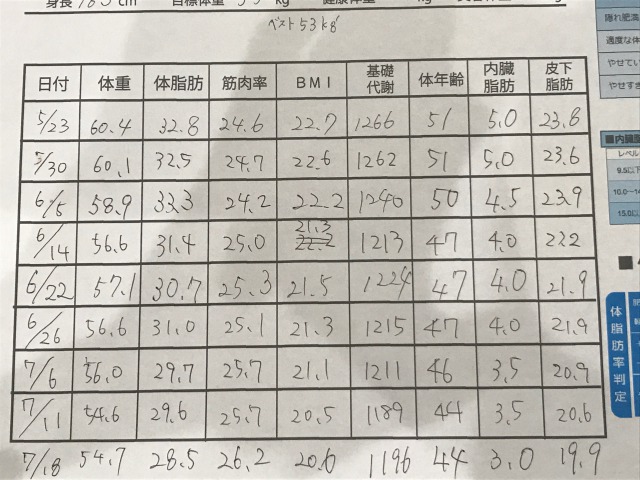 身長 163 cm 目標体重 kg kg
ベスト 53kg
日付 体重 体脂肪 筋肉率 BMI 基礎代謝 体年齢 内臓脂肪 皮下脂肪
5/23 60.4 32.8 24.6 22.7 1266 51 5.0 23.8
5/30 60.1 32.5 24.7 22.6 1262 51 5.0 23.6
6/5 58.9 33.3 24.2 22.2 1240 50 4.5 23.9
6/14 56.6 31.4 25.0 21.3 1213 47 4.0 22.2
6/22 57.1 30.7 25.3 21.5 1224 47 4.0 21.9
6/26 56.6 31.0 25.1 21.3 1215 47 4.0 21.9
7/6 56.0 29.7 25.7 21.1 1211 46 3.5 20.9
7/11 54.6 29.6 25.7 20.5 1189 44 3.5 20.6
7/18 54.7 28.5 26.2 20.6 1196 44 3.0 19.9
隠れ肥満
適度な体
やせてい
やせすき
■内臓脂
レベル
9.5以下
10.0〜14
15.0以
体脂肪率判定